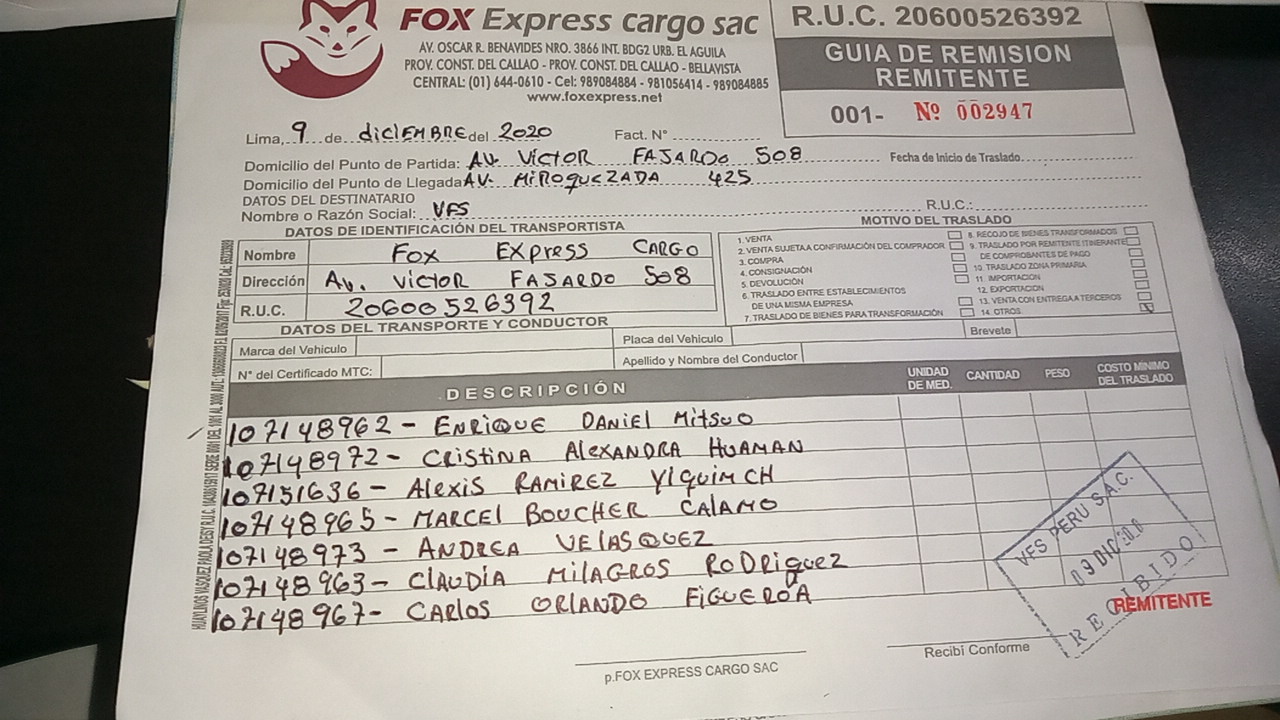 FOX Express cargo sac
AV. OSCAR R. BENAVIDES NRO. 3866 INT. BDG2 URB. EL AGUILA
PROV. CONST. DEL CALLAO - PROV. CONST. DEL CALLAO - BELLAVISTA
CENTRAL: (01) 644-0610 - Cel: 989084884 - 981056414 - 989084885
www.foxexpress.net
R.U.C. 20600526392
GUIA DE REMISION
REMITENTE
001- Nº 002947
Lima, 9 de diciEMBRE del 2020 Fact. N°
Domicilio del Punto de Partida: AV. VICTOR FAJARDO 508 Fecha de Inicio de Traslado
Domicilio del Punto de Llegada AV. MiROqUEZADA 425
DATOS DEL DESTINATARIO
Nombre o Razón Social: VFS R.U.C.:
DATOS DE IDENTIFICACIÓN DEL TRANSPORTISTA
Nombre Fox EXpress CARGO
Dirección AV. VICTOR FAJARDO 508
R.U.C. 20600526392
MOTIVO DEL TRASLADO
1. VENTA
2. VENTA SUJETA A CONFIRMACIÓN DEL COMPRADOR
3. COMPRA
4. CONSIGNACIÓN
5. DEVOLUCIÓN
6. TRASLADO ENTRE ESTABLECIMIENTOS
DE UNA MISMA EMPRESA
7. TRASLADO DE BIENES PARA TRANSFORMACIÓN
8. RECOJO DE BIENES TRANSFORMADOS
9. TRASLADO POR REMITENTE ITINERANTE
DE COMPROBANTES DE PAGO
10. TRASLADO ZONA PRIMARIA
11. IMPORTACIÓN
12. EXPORTACION
13. VENTA CON ENTREGA A TERCEROS
14. OTROS
DATOS DEL TRANSPORTE Y CONDUCTOR
Marca del Vehiculo Placa del Vehículo Brevete
N° del Certificado MTC: Apellido y Nombre del Conductor
DESCRIPCIÓN UNIDAD DE MED. CANTIDAD PESO COSTO MÍNIMO DEL TRASLADO
107148962 - ENRIQUE DANIEL MitSUO
107148972 - CRISTINA AlEXANDRA HUAMAN
107151636 - AlEXiS RAMIREZ
107148965 - MARCEL BOUCHER CAlAMO
107148973 - ANDREA VElASQUEZ
107148963 - ClAUDIA MilAGROS RODRiguEZ
107148967 - CARlOS ORLANDO FiGUEROA
VFS PERU S.A.C.
09 DIC 2020
RECIBIDO
REMITENTE
p.FOX EXPRESS CARGO SAC
Recibí Conforme